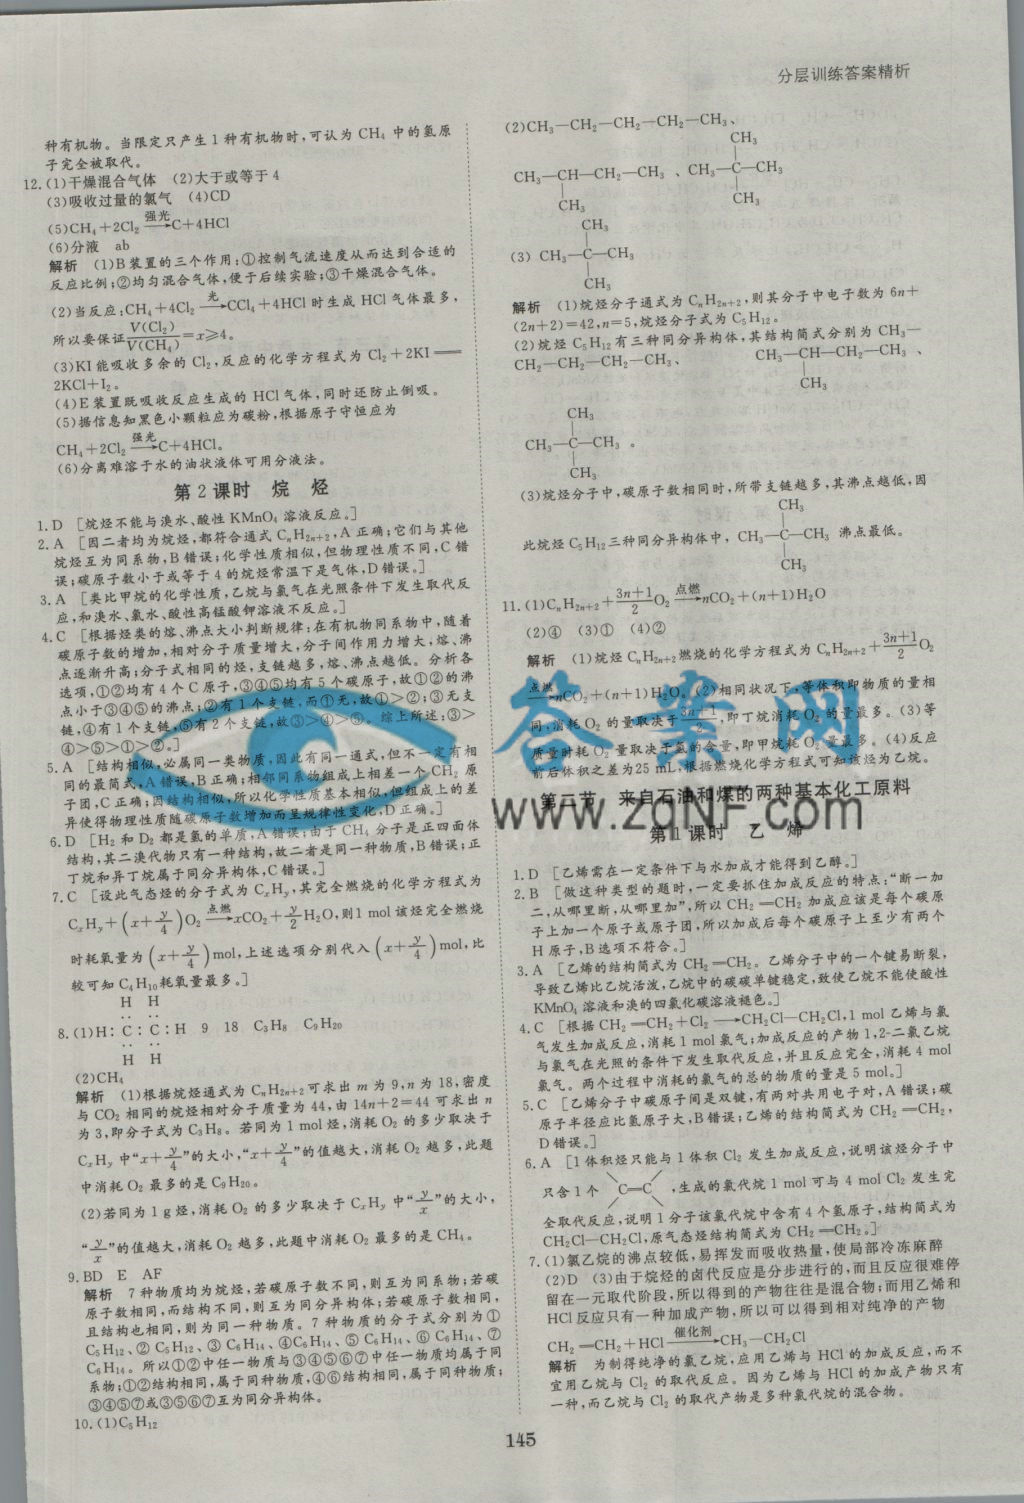 分层训练答案精析
种有机物。当限定只产生1种有机物时,可认为CH₄中的氢原
子完全被取代。
12.(1)干燥混合气体 (2)大于或等于4
(3)吸收过量的氯气 (4)CD
(5)CH₄+2Cl₂ —强光→ C+4HCl
(6)分液 ab
解析 (1)B装置的三个作用:①控制气流速度从而达到合适的
反应比例;②均匀混合气体,便于后续实验;③干燥混合气体。
(2)当反应:CH₄+4Cl₂ —光→ CCl₄+4HCl时生成HCl气体最多,
所以要保证V(Cl₂)/V(CH₄)=x≥4。
(3)KI能吸收多余的Cl₂,反应的化学方程式为Cl₂+2KI══
2KCl+I₂。
(4)E装置既吸收反应生成的HCl气体,同时还防止倒吸。
(5)据信息知黑色小颗粒应为碳粉,根据原子守恒应为
CH₄+2Cl₂ —强光→ C+4HCl。
(6)分离难溶于水的油状液体可用分液法。
第2课时 烷 烃
1.D [烷烃不能与溴水、酸性KMnO₄溶液反应。]
2.A [因二者均为烷烃,都符合通式CₙH₂ₙ₊₂,A正确;它们与其他
烷烃互为同系物,B错误;化学性质相似,但物理性质不同,C错
误;碳原子数小于或等于4的烷烃常温下是气体,D错误。]
3.A [类比甲烷的化学性质,乙烷与氯气在光照条件下发生取代反
应,和溴水、氯水、酸性高锰酸钾溶液不反应。]
4.C [根据烃类的熔、沸点大小判断规律:在有机物同系物中,随着
碳原子数的增加,相对分子质量增大,分子间作用力增大,熔、沸
点逐渐升高;分子式相同的烃,支链越多,熔、沸点越低。分析各
选项,①②均有4个C原子,③④⑤均有5个碳原子,故①②的沸
点小于③④⑤的沸点;②有1个支链,而①无,故①>②;③无支
链,④有1个支链,⑤有2个支链,故③>④>⑤。综上所述:③>
④>⑤>①>②。]
5.A [结构相似,必属同一类物质,因此有同一通式,但不一定有相
同的最简式,A错误,B正确;相邻同系物组成上相差一个CH₂原
子团,C正确;因结构相似,所以化学性质基本相似,但组成上的差
异使得物理性质随碳原子数增加而呈规律性变化,D正确。]
6.D [H₂和D₂都是氢的单质,A错误;由于CH₄分子是正四面体
结构,其二溴代物只有一种结构,故二者是同一种物质,B错误;正
丁烷和异丁烷属于同分异构体,C错误。]
7.C [设此气态烃的分子式为CₓHᵧ,其完全燃烧的化学方程式为
CₓHᵧ+(x+y/4)O₂ —点燃→ xCO₂+y/2H₂O,则1 mol该烃完全燃烧
时耗氧量为(x+y/4)mol,上述选项分别代入(x+y/4)mol,比
较可知C₄H₁₀耗氧量最多。]
H H
8.(1)H∶C∶C∶H 9 18 C₃H₈ C₉H₂₀
H H
(2)CH₄
解析 (1)根据烷烃通式为CₙH₂ₙ₊₂可求出m为9,n为18,密度
与CO₂相同的烷烃相对分子质量为44,由14n+2=44可求出n
为3,即分子式为C₃H₈。若同为1 mol烃,消耗O₂的多少取决于
CₓHᵧ中“x+y/4”的大小,“x+y/4”的值越大,消耗O₂越多,此题
中消耗O₂最多的是C₉H₂₀。
(2)若同为1 g烃,消耗O₂的多少取决于CₓHᵧ中“y/x”的大小,
“y/x”的值越大,消耗O₂越多,此题中消耗O₂最多的是CH₄。
9.BD E AF
解析 7种物质均为烷烃,若碳原子数不同,则互为同系物;若碳
原子数相同,而结构不同,则互为同分异构体;若碳原子数相同,
且结构也相同,则为同一种物质。7种物质的分子式分别为①
C₅H₁₂、②C₅H₁₂、③C₆H₁₄、④C₆H₁₄、⑤C₆H₁₄、⑥C₆H₁₄、⑦
C₆H₁₄。所以①②中任一物质与③④⑤⑥⑦中任一物质均属于同
系物;①②结构相同,属于同种物质,④⑥结构相同,属于同种物质;
③④⑤⑦或③⑤⑥⑦互为同分异构体。
10.(1)C₅H₁₂
(2)CH₃—CH₂—CH₂—CH₂—CH₃、
CH₃
CH₃—CH—CH₂—CH₃、CH₃—C—CH₃
CH₃ CH₃
CH₃
(3) CH₃—C—CH₃
CH₃
解析 (1)烷烃分子通式为CₙH₂ₙ₊₂,则其分子中电子数为6n+
(2n+2)=42,n=5,烷烃分子式为C₅H₁₂。
(2)烷烃C₅H₁₂有三种同分异构体,其结构简式分别为CH₃—
CH₂—CH₂—CH₂—CH₃、 CH₃—CH—CH₂—CH₃、
CH₃
CH₃
CH₃—C—CH₃。
CH₃
(3)烷烃分子中,碳原子数相同时,所带支链越多,其沸点越低,因
CH₃
此烷烃C₅H₁₂三种同分异构体中,CH₃—C—CH₃沸点最低。
CH₃
11.(1)CₙH₂ₙ₊₂+(3n+1)/2O₂ —点燃→ nCO₂+(n+1)H₂O
(2)④ (3)① (4)②
解析 (1)烷烃CₙH₂ₙ₊₂燃烧的化学方程式为CₙH₂ₙ₊₂+(3n+1)/2O₂
—点燃→ nCO₂+(n+1)H₂O。(2)相同状况下,等体积即物质的量相
同,消耗O₂的量取决于(3n+1)/2,即丁烷消耗O₂的量最多。(3)等
质量时耗O₂量取决于氢的含量,即甲烷耗O₂量最多。(4)反应
前后体积之差为25 mL,根据燃烧化学方程式可知该烃为乙烷。
第二节 来自石油和煤的两种基本化工原料
第1课时 乙 烯
1.D [乙烯需在一定条件下与水加成才能得到乙醇。]
2.B [做这种类型的题时,一定要抓住加成反应的特点:“断一加
二,从哪里断,从哪里加”,所以CH₂═CH₂加成应该是每个碳原
子上加一个原子或原子团,所以加成后每个碳原子上至少有两个
H原子,B选项不符合。]
3.A [乙烯的结构简式为CH₂═CH₂。乙烯分子中的一个键易断裂,
导致乙烯比乙烷活泼,乙烷中的碳碳单键稳定,致使乙烷不能使酸性
KMnO₄溶液和溴的四氯化碳溶液褪色。]
4.C [根据CH₂═CH₂+Cl₂—→CH₂Cl—CH₂Cl,1 mol乙烯与氯
气发生加成反应,消耗1 mol氯气;加成反应的产物1,2-二氯乙烷
与氯气在光照的条件下发生取代反应,并且反应完全,消耗4 mol
氯气。两个过程中消耗的氯气的总的物质的量是5 mol。]
5.C [乙烯分子中碳原子间是双键,有两对共用电子对,A错误;碳
原子半径应比氢原子大,B错误;乙烯的结构简式为CH₂═CH₂,
D错误。]
6.A [1体积烃只能与1体积Cl₂发生加成反应,说明该烃分子中
只含1个 C═C ,生成的氯代烷1 mol可与4 mol Cl₂发生完
全取代反应,说明1分子该氯代烷中含有4个氢原子,结构简式为
CH₂Cl—CH₂Cl,原气态烃结构简式为CH₂═CH₂。]
7.(1)氯乙烷的沸点较低,易挥发而吸收热量,使局部冷冻麻醉
(2)D (3)由于烷烃的卤代反应是分步进行的,而且反应很难停
留在一元取代阶段,所以得到的产物往往是混合物;而用乙烯和
HCl反应只有一种加成产物,所以可以得到相对纯净的产物
CH₂═CH₂+HCl —催化剂→ CH₃—CH₂Cl
解析 为制得纯净的氯乙烷,应用乙烯与HCl的加成反应,而不
宜用乙烷与Cl₂的取代反应。因为乙烯与HCl的加成产物只有
一种,而乙烷与Cl₂的取代产物是多种氯代烷的混合物。
答案网
www.zqNF.com
145